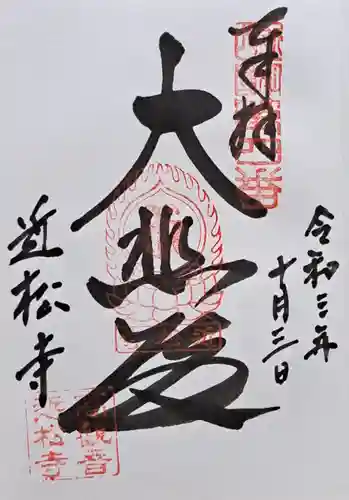 奉拝
令和三年
十月三日
大悲殿
近松寺